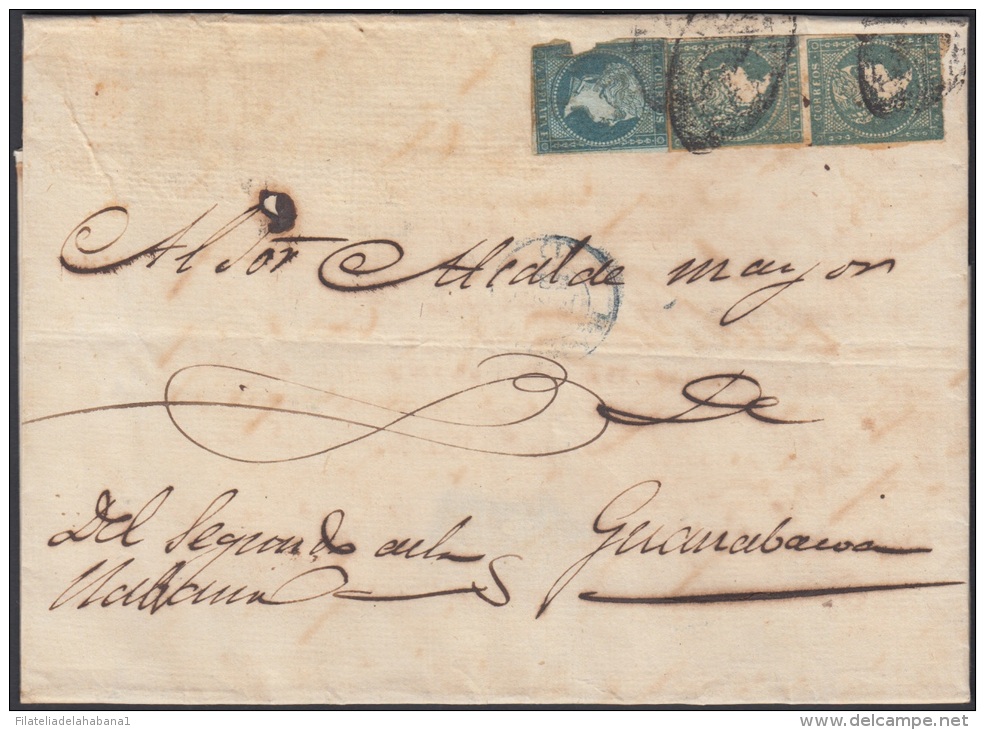 CORREOS
Al Sor Alcalde mayor
De
Del Segundo de la Guanabacoa
Habana
Filateliadelahabana1
delcampe.net